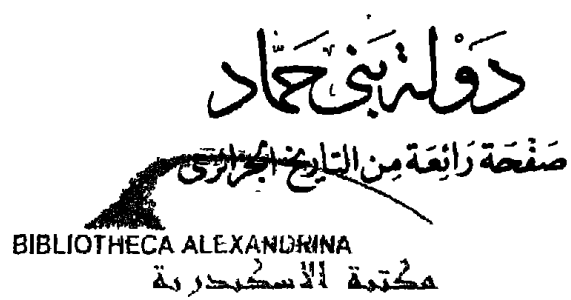 دَوْلة بَني حَمَّاد
صَفْحَة رَائِعَة مِن التَاريخ الجزائرى
BIBLIOTHECA ALEXANDRINA
مكتبة الاسكندرية